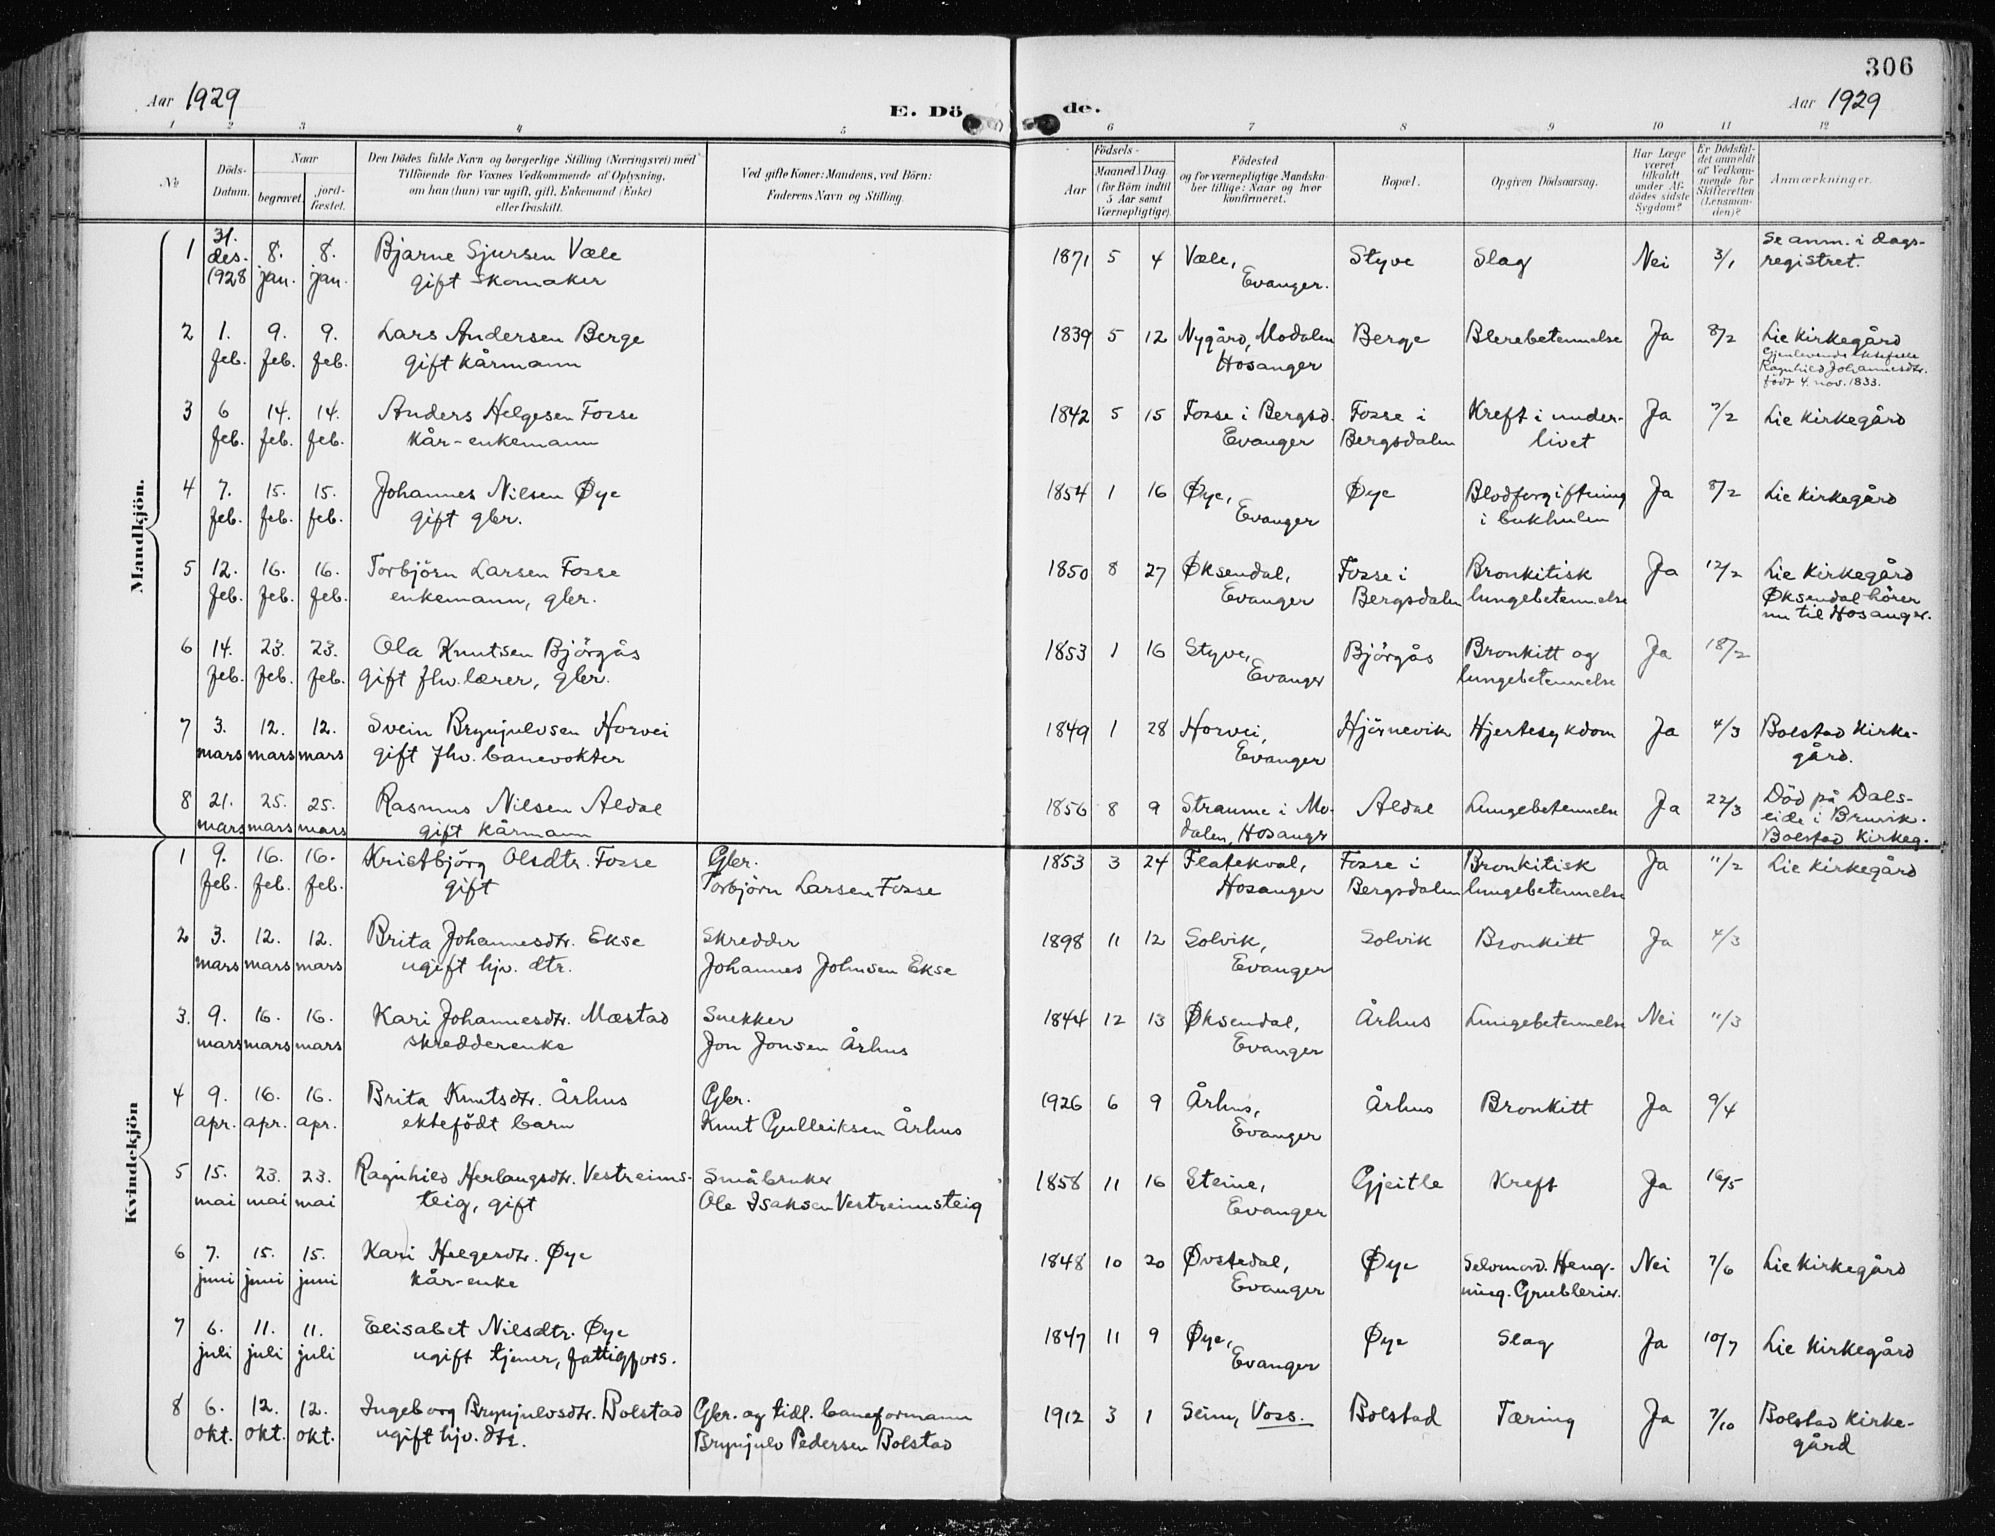 306
Aar 1929
E. Dö de.
Aar 1929
1 2 3 4 5 6 7 8 9 10 11 12
No
Döds-
Datum.
Naar
begravet.
jord-
fæstet.
Den Dödes fulde Navn og borgerlige Stilling (Næringsvei) med
Tilföiende for Voxnes Vedkommende af Oplysning,
om han (hun) var ugift, gift, Enkemand (Enke)
eller fraskilt.
Ved gifte Koner: Mandens, ved Börn:
Faderens Navn og Stilling.
Födsels-
Aar
Maaned Dag
(for Börn indtil
5 Aar samt
Værnepligtige).
Födested
og for værnepligtige Mandska-
ber tillige: Naar og hvor
konfirmeret.
Bopæl.
Opgiven Dödsaarsag.
Har Læge
været
tilkaldt
under Af-
dödes sidste
Sygdom?
Er Dödsfal-
det anmeldt
af Vedkom-
mende for
Skifteretten
(Lensman-
den)?
Anmærkninger.
Mandkjön.
1 31. des. 1928 8. jan. 8. jan. Bjarne Sjursen Væle
gift skomaker
1871 5 4 Væle,
Evanger. Styve Slag Nei 3/1 Se anm. i dags-
registret.
2 1. feb. 9. feb. 9. feb. Lars Andersen Berge
gift kårmann
1839 5 12 Nygård, Modalen
Hosanger Berge Blerebetennelse Ja 8/2 Lie kirkegård
Gjenlevende ektefelle
Ragnhild Johannesdtr.
født 4. nov. 1833.
3 6 feb. 14. feb. 14. feb. Anders Helgesen Fosse
kår-enkemann
1842 5 15 Fosse i Bergsd.
Evanger Fosse i
Bergsdalen Kreft i under-
livet Ja 7/2 Lie kirkegård
4 7. feb. 15. feb. 15. feb. Johannes Nilsen Øye
gift gbr.
1854 1 16 Øye,
Evanger Øye Blodforgiftning
i bukhulen Ja 8/2 Lie kirkegård
5 12. feb. 16. feb. 16. feb. Torbjörn Larsen Fosse
enkemann, gbr.
1850 8 27 Øksendal,
Evanger Fosse i
Bergsdalen Bronkitisk
lungebetennelse Ja 12/2 Lie kirkegård
Øksendal hörer
nu til Hosanger.
6 14. feb. 23. feb. 23. feb. Ola Knutsen Björgås
gift fhv. lærer, gbr.
1853 1 16 Styve,
Evanger Björgås Bronkitt og
lungebetennelse Ja 18/2
7 3. mars 12. mars 12. mars Svein Brynjulvsen Horvei
gift fhv. banevokter
1849 1 28 Horvei,
Evanger Hjörnevik Hjertesykdom Ja 4/3 Bolstad kirke-
gård.
8 21. mars 25. mars 25. mars Rasmus Nilsen Aldal
gift kårmann
1856 8 9 Straume i Mo-
dalen, Hosanger Aldal Lungebetennelse Ja 22/3 Död på Dals-
eide i Bruvik.
Bolstad kirkeg.
Kvindekjön
1 9. feb. 16. feb. 16. feb. Kristbjörg Olsdtr. Fosse
gift
Gbr.
Torbjörn Larsen Fosse
1853 3 24 Flatekval,
Hosanger Fosse i
Bergsdalen Bronkitisk
lungebetennelse Ja 11/2 Lie kirkegård
2 3. mars 12. mars 12. mars Brita Johannesdtr. Ekse
ugift hjv. dtr.
Skredder
Johannes Johnsen Ekse
1898 11 12 Solvik,
Evanger Solvik Bronkitt Ja 4/3
3. 9. mars 16. mars 16. mars Kari Johannesdtr. Mæstad
skredderenke
Snekker
Jon Jonsen Århus
1844 12 13 Øksendal,
Evanger Århus Lungebetennelse Nei 11/3
4 9. apr. 16. apr. 16. apr. Brita Knutsdtr. Århus
ektefödt barn
Gbr.
Knut Gulleiksen Århus
1926 6 9 Århus,
Evanger Århus Bronkitt Ja 9/4
5 15. mai 23. mai 23. mai Ragnhild Herlaugsdtr. Vestreims-
teig, gift
Småbruker
Ole Isaksen Vestreimsteig
1858 11 16 Steine,
Evanger Gjeitle Kreft Ja 16/5
6 7. juni 15. juni 15. juni Kari Helgesdtr. Øye
kår-enke
1848 10 20 Øvstedal,
Evanger Øye Selvmord. Heng-
ning. Grublerier. Nei 7/6 Lie kirkegård
7 6. juli 11. juli 11. juli Elisabet Nilsdtr. Øye
ugift tjener, fattigfors.
1847 11 9 Øye,
Evanger Øye Slag Ja 10/7 Lie kirkegård
8 6. okt. 12. okt. 12. okt. Ingeborg Brynjulvsdtr. Bolstad
ugift hjv. dtr.
Gbr. og tidl. baneformann
Brynjulv Pedersen Bolstad
1912 3 1 Seim, Voss. Bolstad Tæring Ja 7/10 Bolstad kirke-
gård